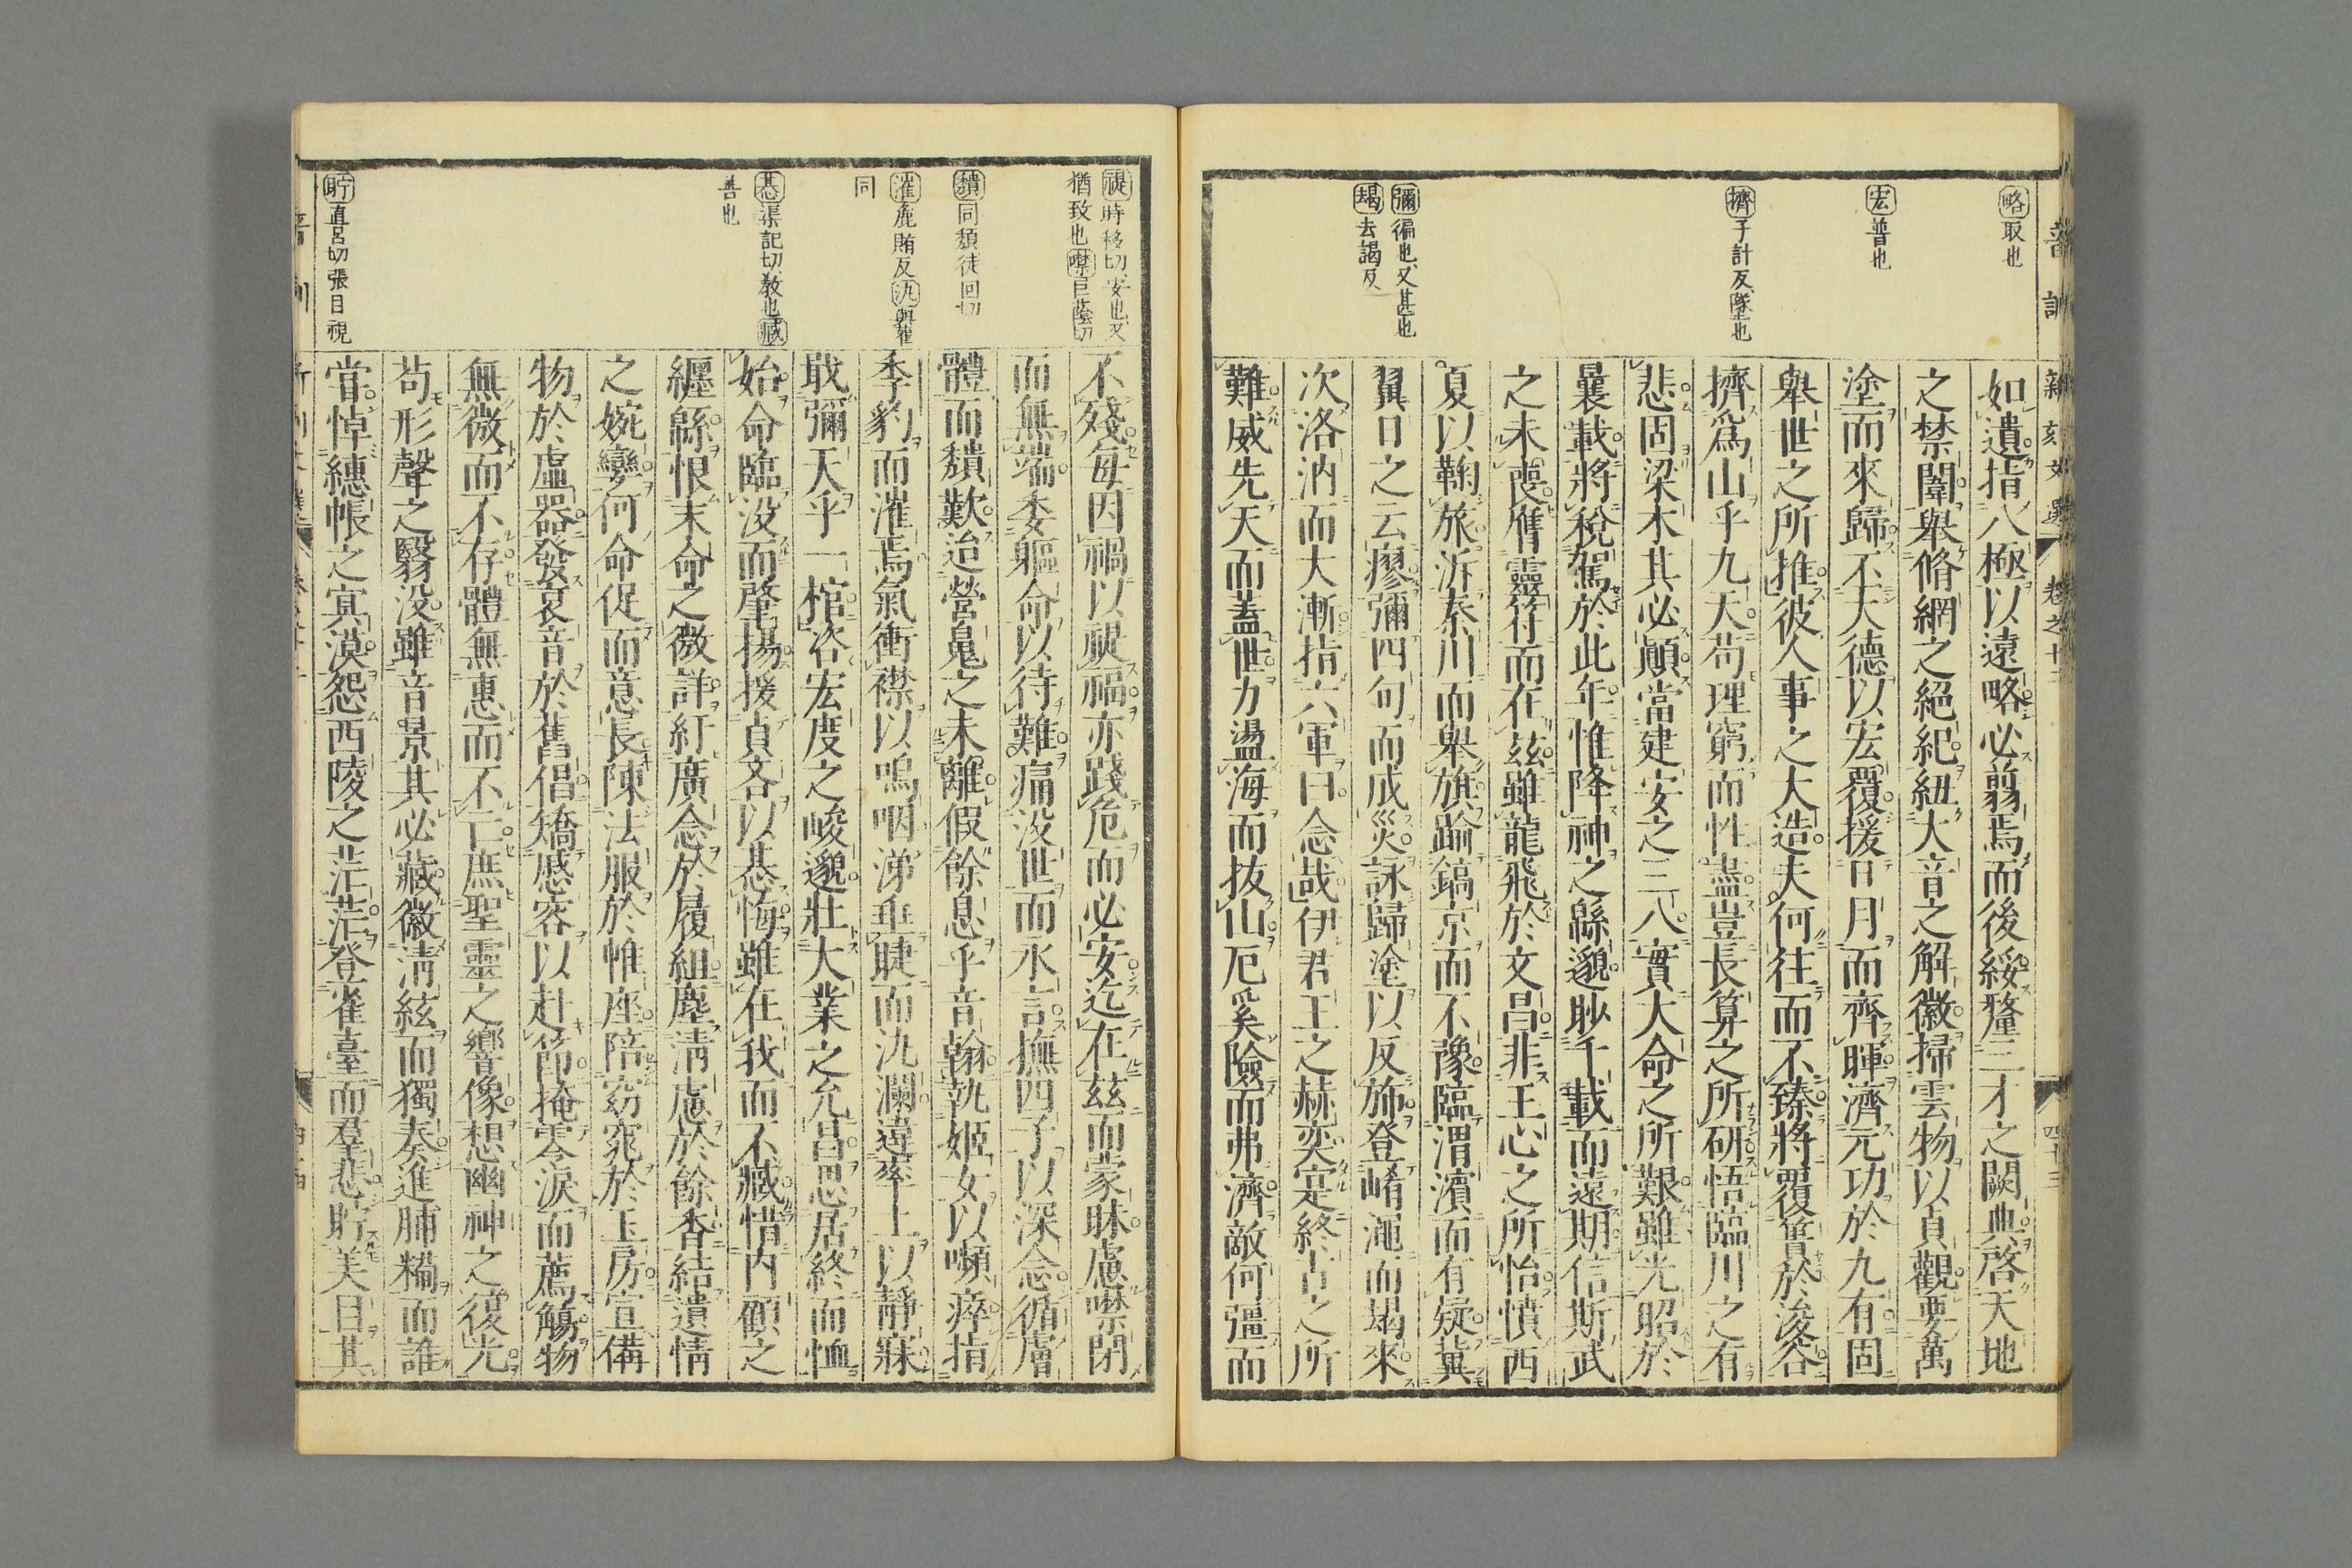 音訓
新刻文選
卷之十二
四十三
略取也
宏普也
擠子計反墜也
彌徧也又甚也
朅去謁反
如遺指八極以遠略必翦焉而後綏釐三才之闕典啓天地
之禁闈舉脩網之絕紀紐大音之解徽掃雲物以貞觀要萬
塗而來歸丕大德以宏覆援日月而齊暉濟元功於九有固
舉世之所推彼人事之大造夫何往而不臻將覆簣於浚谷
擠爲山乎九天苟理窮而性盡豈長算之所研悟臨川之有
悲固梁木其必顚當建安之三八實大命之所艱雖光昭於
曩載將稅駕於此年惟降神之緜邈眇千載而遠期信斯武
之未喪膺靈符而在茲雖龍飛於文昌非王心之所怡憤西
夏以鞠旅泝秦川而舉旗踰鎬京而不豫臨渭濱而有疑冀
翼日之云瘳彌四旬而成災詠歸塗以反旆登崤澠而朅來
次洛汭而大漸指六軍曰念哉伊君王之赫奕寔終古之所
難威先天而蓋世力盪海而拔山厄奚險而弗濟敵何彊而
禔時移切安也又
猶致也噤巨蔭切
穨同頹徒回切
漼鹿賄反汍與萑
同
惎渠記切教也臧
善也
貯直呂切張目視
不殘每因禍以禔福亦踐危而必安迄在茲而蒙昧慮噤閉
而無端委軀命以待難痛没世而永言撫四子以深念循膚
體而穨歎迨營魄之未離假餘息乎音翰執姬女以嚬瘁指
季豹而漼焉氣衝襟以嗚咽涕垂睫而汍瀾違率土以靜寐
戢彌天乎一棺咨宏度之峻邈壯大業之允昌思居終而恤
始命臨没而肇揚援貞吝以惎悔雖在我而不臧惜内顧之
纏緜恨末命之微詳紆廣念於履組塵清慮於餘香結遺情
之婉孌何命促而意長陳法服於帷座陪窈窕於玉房宣備
物於虛器發哀音於舊倡矯慼容以赴節掩零淚而薦觴物
無微而不存體無惠而不亡庶聖靈之響像想幽神之復光
苟形聲之翳没雖音景其必藏徽清絃而獨奏進脯糒而誰
嘗悼繐帳之寘漠怨西陵之茫茫登雀臺而羣悲貯美目其